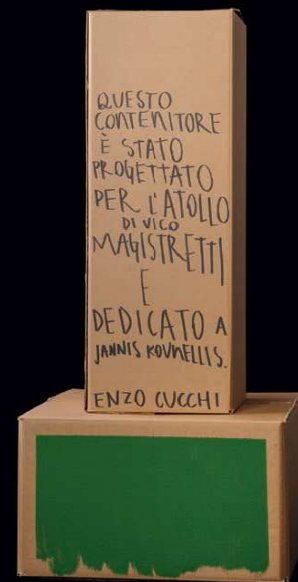 QUESTO
CONTENITORE
È STATO
PROGETTATO
PER L'ATOLLO
DI VICO
MAGISTRETTI
E
DEDICATO A
JANNIS KOUNELLIS.
ENZO CUCCHI